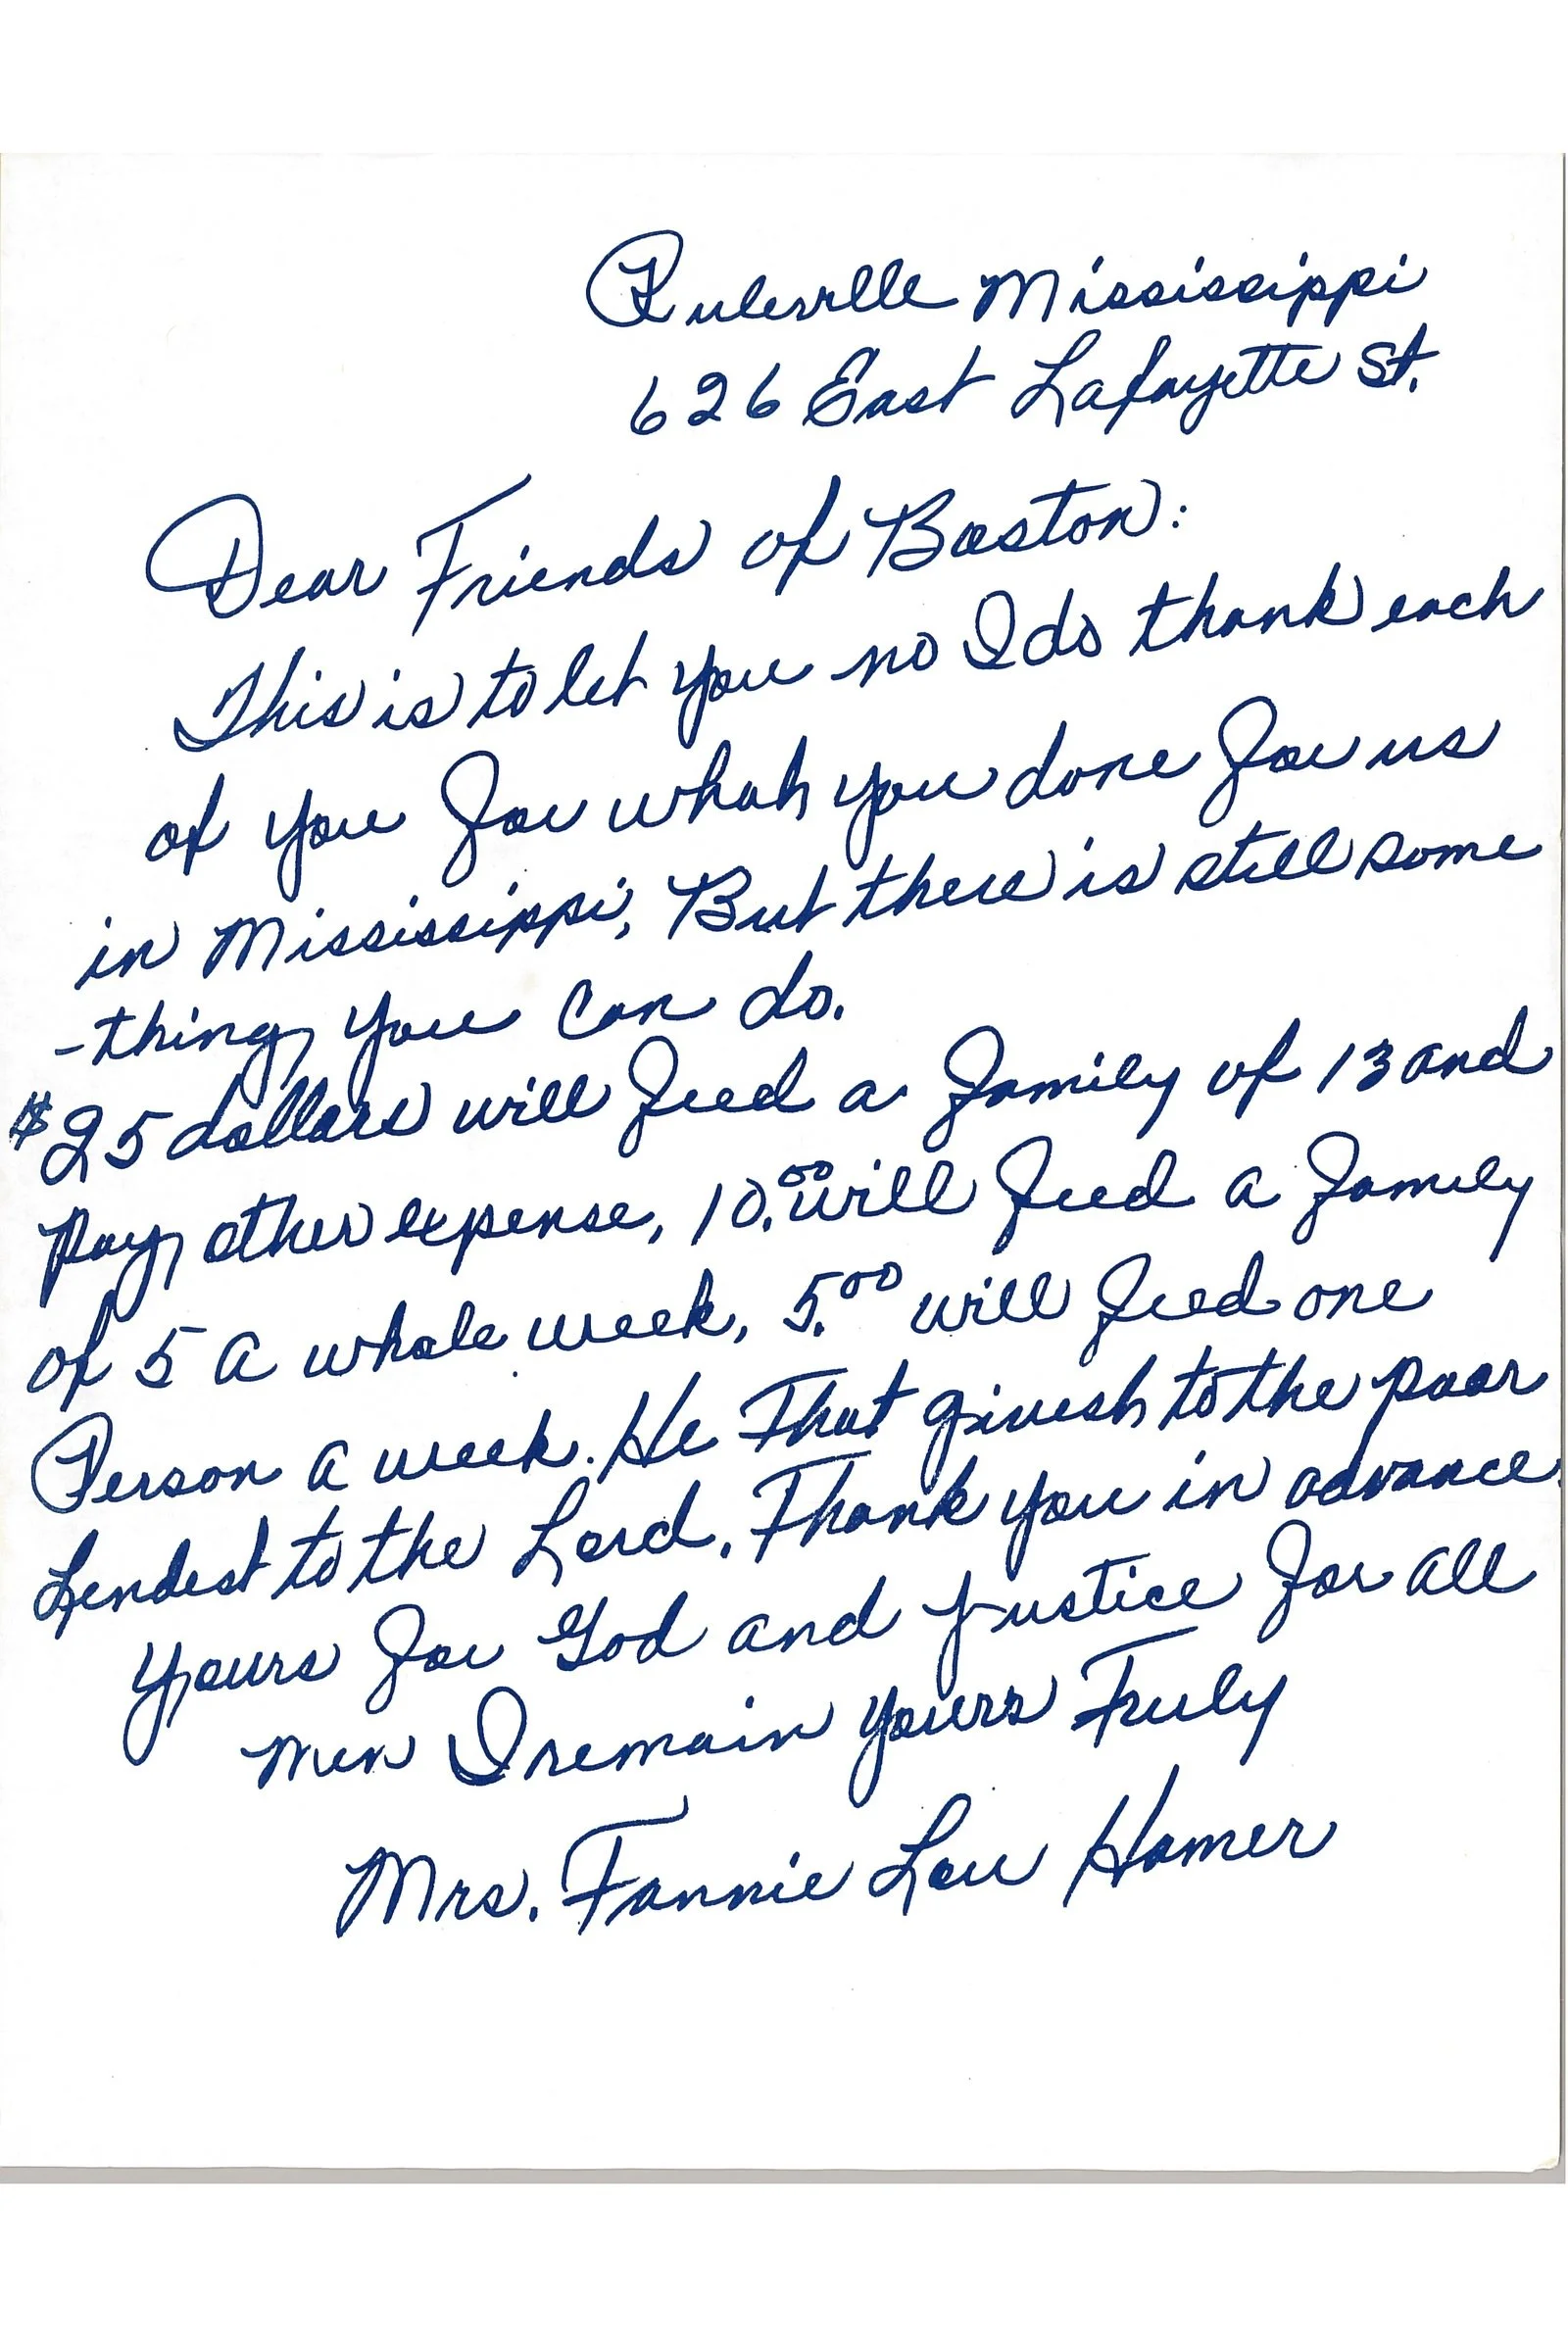 Ruleville Mississippi
626 East Lafayette St.
Dear Friends of Boston:
This is to let you no I do thank each
of you for what you done for us
in Mississippi, But there is still some
-thing you can do.
$25 dollars will feed a family of 13 and
pay other expense, 10.00 will feed a family
of 5 a whole week, 5.00 will feed one
Person a week. He That givesh to the poor
Lendest to the Lord. Thank you in advance.
Yours for God and Justice for all
men I remain yours Truly
Mrs. Fannie Lou Hamer